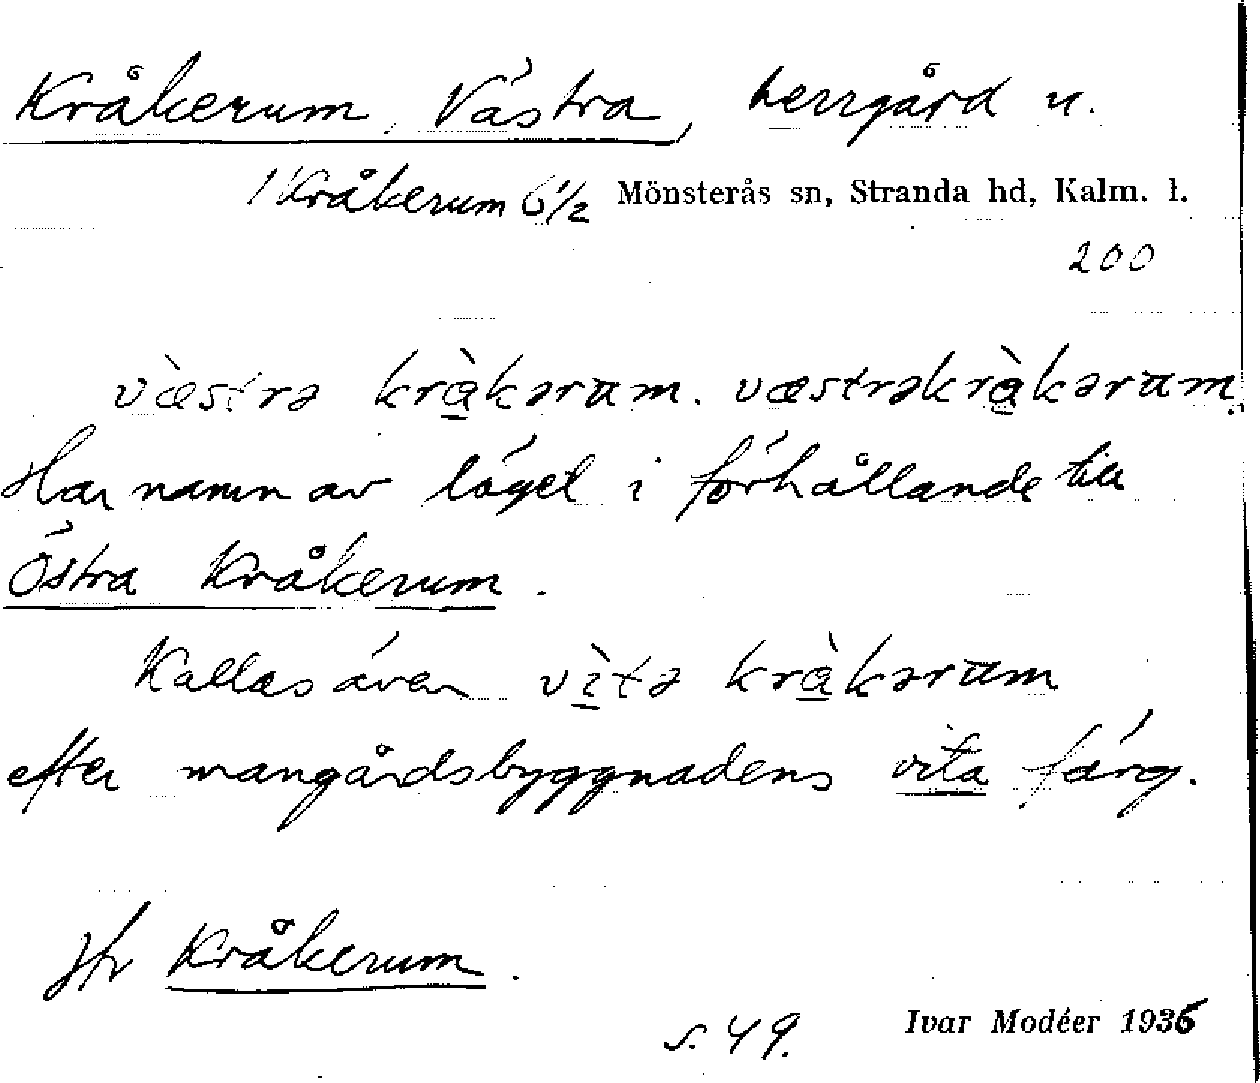 Kråkerum, Västra, herrgård u.
1 Kråkerum 6 1/2 Mönsterås sn, Stranda hd, Kalm. l.
200
væ̀strə krà̲kərum. væstrəkrà̲kərum.
Har namn av läget i förhållande till
Östra Kråkerum.
Kallas även vì̲tə krà̲kərum
efter mangårdsbyggnadens vita färg.
Jfr Kråkerum.
s. 49. Ivar Modéer 1936